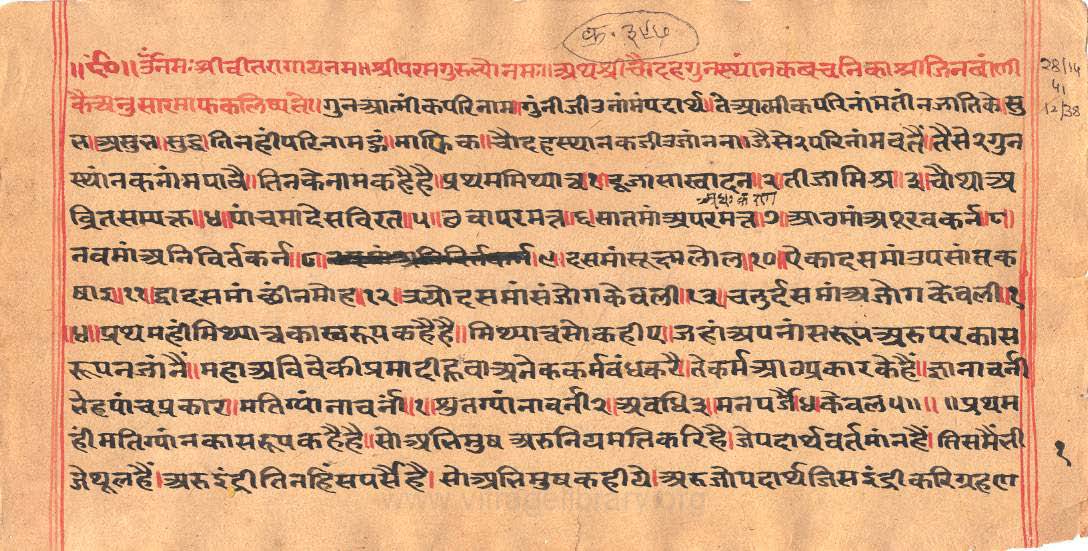 क्र. ३५७
॥र्द०॥ उँनमः श्रीवीतरागायनम॥ श्रीपरमगुरुभ्योनमः॥ अथश्रीचौदहगुनस्थांनकबचनिकाश्रीजिनवांणी
कैअनुसारमाफकलिष्यते॥ गुनआत्मीकपरिनाम।गुंनीजीउनांमपदार्थ।तेआत्मीकपरिनांमतीनजातिकेसु
28/14
41
12/38
।असुभ।सुद्ध।तिनहींपरिनामहं।माफिक।चौदहस्थानकजीउजांनना।जैसे२परिनांमवर्तैं।तैसे२गुन
स्थांनकनांमपावै।तिनकेनामकहैहै।प्रथममिथ्यात्व१।दूजासास्वादन।२।तीजामिश्र।३।चौथाअ
व्रितसम्यक्त।४।पांचमादेसविरत।५।छठवापरमत्त।६।सातमांअपरमत्त।७।आठमांअपूरवकर्न।८
नवमांअनिविर्तकर्न।९।दसमांसूक्ष्मलोल।१०।ऐकादसमांउपसांतक
षाइ।११।द्वादसमांछींनमोह।१२।त्रयोदसमांसंजोगकेवली।१३।चतुर्दसमांअजोगकेवली।१
।४।प्रथमहींमिथ्यात्वकास्वरूपकहैहै॥मिथ्यात्वसोकहीए।जहांअपनांसरूपअरुपरकास
रूपनजांनैं॥महाअविवेकीप्रमादीहूवाअनेककर्मबंधकरै।तेकर्मआठप्रकारकेहैं।ज्ञानावर्नी
तेहपांचप्रकार।मतिग्यांनावर्नी।१।श्रुतग्यांनावर्नी२।अवधि३।मनपर्जै४।केवल५॥॥॥प्रथम
हींमतिग्यांनकासरूपकहैहै॥सोअभिमुषअरुनियमतिकरिहै।जेपदार्थवर्तमांनहैं।तिसमैंभी
जेथूलहैं।अरुइंद्रीतिनहिंसपर्सैहै।सोअभिमुषकहीये।अरुजोपदार्थजिसइंद्रीकरिग्रहण
१
www.villagelibrary.org